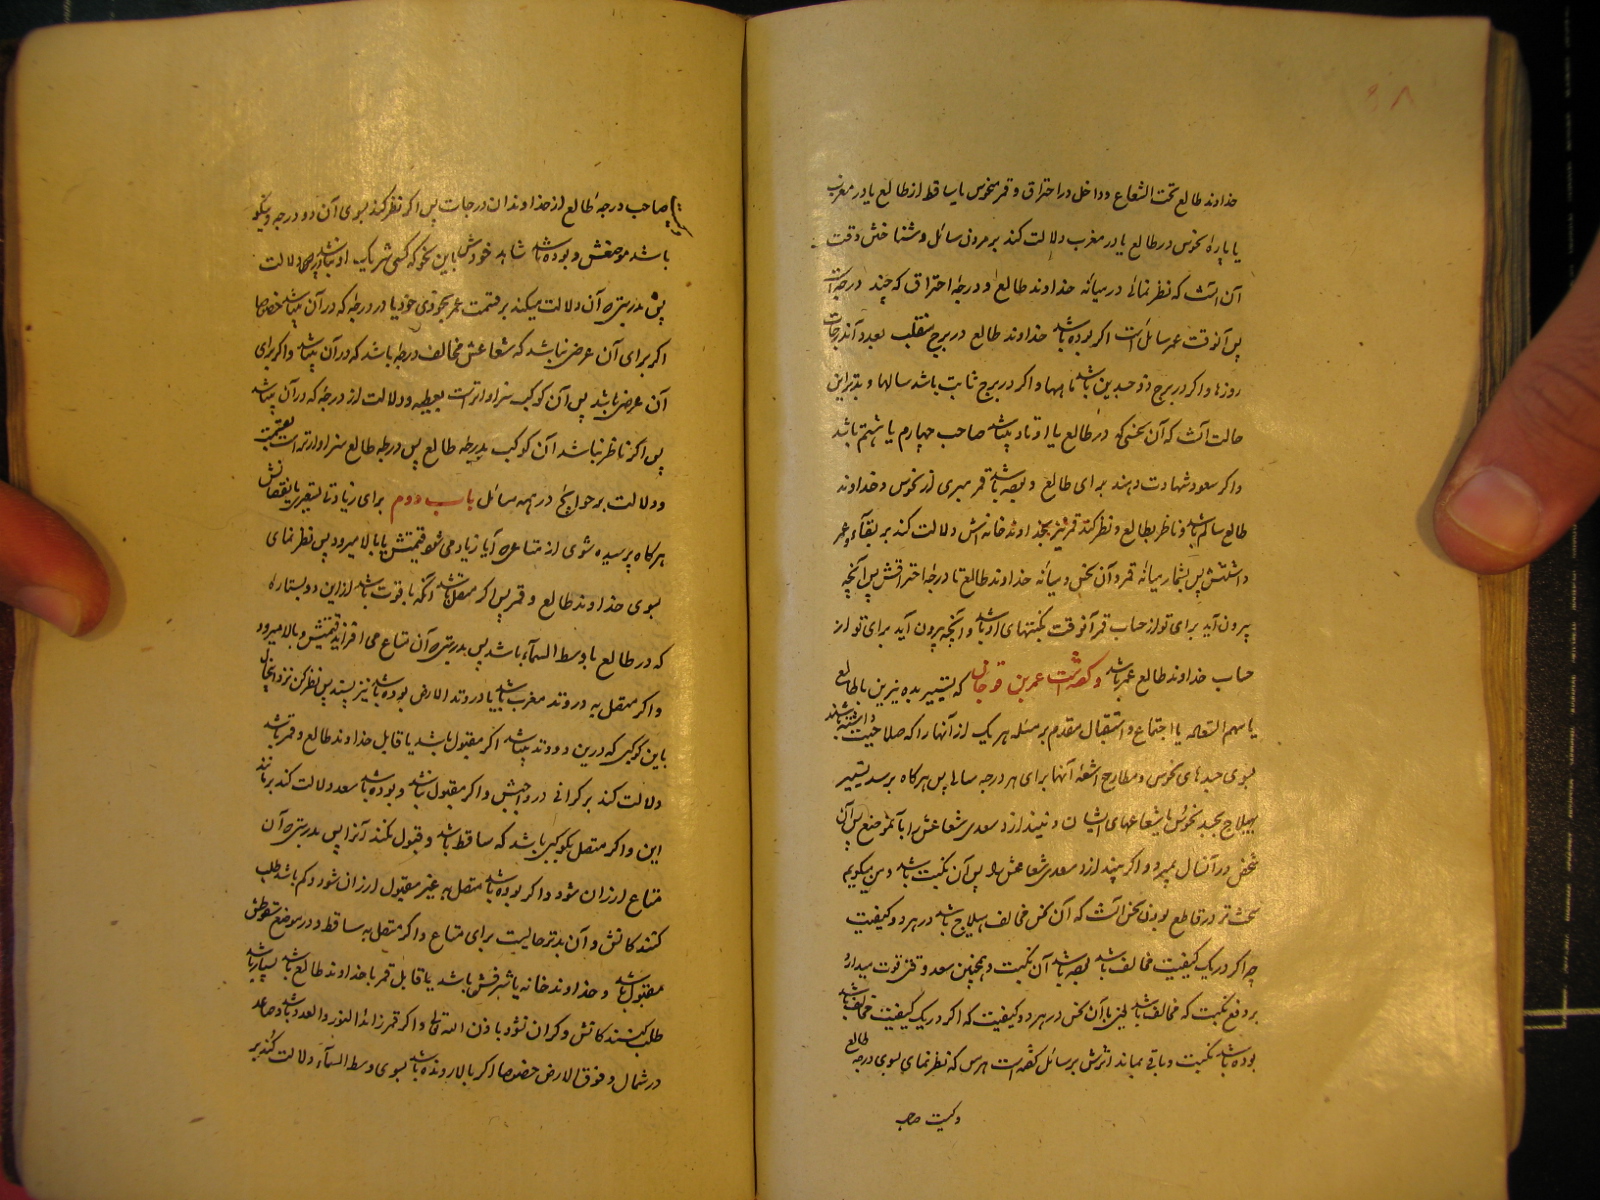 ۹۸
خداوند طالع تحت الشعاع و داخل در احتراق و قمر منحوس یا ساقط از طالع یا در مغرب
یا پاره نحوس در طالع یا در مغرب دلالت کند بر مردن سائل و شناختن وقت
آن آنست که نظر نمائی در میانه خداوند طالع و درجه احتراق که چند درجه است
پس آنوقت عمر سائل است اگر بوده باشد خداوند طالع در برج منقلب بعدد آن درجات
روزها و اگر در برج ذو جسدین باشد ماهها و اگر در برج ثابت باشد سالها و بدترین
حالت آنست که آن نحسی که در طالع یا اوتاد میباشد صاحب چهارم یا هشتم باشد
و اگر سعود شهادت دهند برای طالع و بوده باشد قمر بری از نحوس و خداوند
طالع سالم باشد و ناظر بطالع و نظر کند قمر نیز بخداوند خانه‌اش دلالت کند بر بقاء و عمر
داشتنش پس بشمار میانه قمر و آن نحس و میانه خداوند طالع تا درجه احتراقش پس آنچه
بیرون آید برای تو از حساب قمر آنوقت نکبتهای او باشد و آنچه بیرون آید برای تو از
حساب خداوند طالع عمر باشد و گفته است عمر بن فرخان که تسییر بده نیرین با طالع
یا سهم السعاده یا اجتماع و استقبال مقدم بر مسئله هر یک از آنها را که صلاحیت داشته باشند
بسوی جسدهای نحوس و مطارح اشعه آنها برای هر درجه سالی پس هرگاه برسد تسییر
بهیلاج بجسد نحوس یا شعاعهای ایشان و نیندازد سعدی شعاعش را بآنموضع پس آن
شخص در آنسال بمیرد و اگر بیندازد سعدی شعاعش را پس آن نکبت باشد و من میگویم
سخت‌تر در قاطع بودن نحس آنست که آن نحس مخالف هیلاج باشد در هر دو کیفیت
چه اگر در یک کیفیت مخالف باشد بوده باشد آن نکبت و همچنین سعد وقتی قوت میدارد
بر دفع نکبت که مخالف باشد با آن نحس در هر دو کیفیت که اگر در یک کیفیت مخالف باشد
بوده باشد نکبت و باقی بماند اثرش بر سائل گفته است هرمس که نظر نمای بسوی درجه طالع
و کیست صاحب
و کیست صاحب درجه طالع از خداوندان درجات پس اگر نظر کند بسوی آن دو درجه و نیکو
باشد موضعش و بوده باشد شاهد خودش باین نحو که کسی شریک او نباشد در دلالت
پس بدرستی‌که آن دلالت میکند بر قسمت عمر بخودی خود یا در درجه که در آن میباشد خصوصا
اگر برای آن عرضی نباشد که شعاعش مخالف درجه باشد که در آن میباشد و اگر برای
آن عرض باشد پس آن کوکب سزاوارتر است بعطیه و دلالت از درجه که در آن میباشد
پس اگر ناظر نباشد آن کوکب بدرجه طالع پس درجه طالع سزاوارتر است بقسمت
و دلالت بر حوایج در همه مسائل باب دوم برای زیادتی تسعیر یا نقصانش
هرگاه پرسیده شوی از متاعی که آیا زیاد می‌شود قیمتش یا بالا میرود پس نظر نمای
بسوی خداوند طالع و قمر پس اگر متصل باشد آنکه با قوت باشد از این دو بستاره
که در طالع یا وسط السماء باشد پس بدرستی‌که آن متاع می‌افزاید قیمتش و بالا میرود
و اگر متصل به در وتد مغرب باشد یا در وتد الارض بوده باشد نیز پسند پس نظر کن نزد اتصال
باین کوکبی که درین دو وتد میباشد اگر مقبول باشد یا قابل خداوند طالع و قمر باشد
دلالت کند بر گرانی در رواجیش و اگر مقبول نباشد و بوده باشد سعد دلالت کند بر مانند
این و اگر متصل بکوکبی باشد که ساقط باشد و قبول نکند آنرا پس بدرستی‌که آن
متاع ارزان شود و اگر بوده باشد متصل به غیر مقبول ارزان شود و کم باشد طلب
کنندگانش و آن بدتر حالیست برای متاع و اگر متصل به ساقط و در موضع سقوطش
مقبول باشد و خداوند خانه یا شرفش باشد یا قابل قمر یا خداوند طالع باشد بسیار باشد
طلب کنندگانش و گران نشود باذن الله تعالی و اگر قمر زاید النور و العدد باشد و صاعد
در شمال و فوق الارض خصوصا اگر بالا رونده باشد بسوی وسط السماء دلالت کند بر